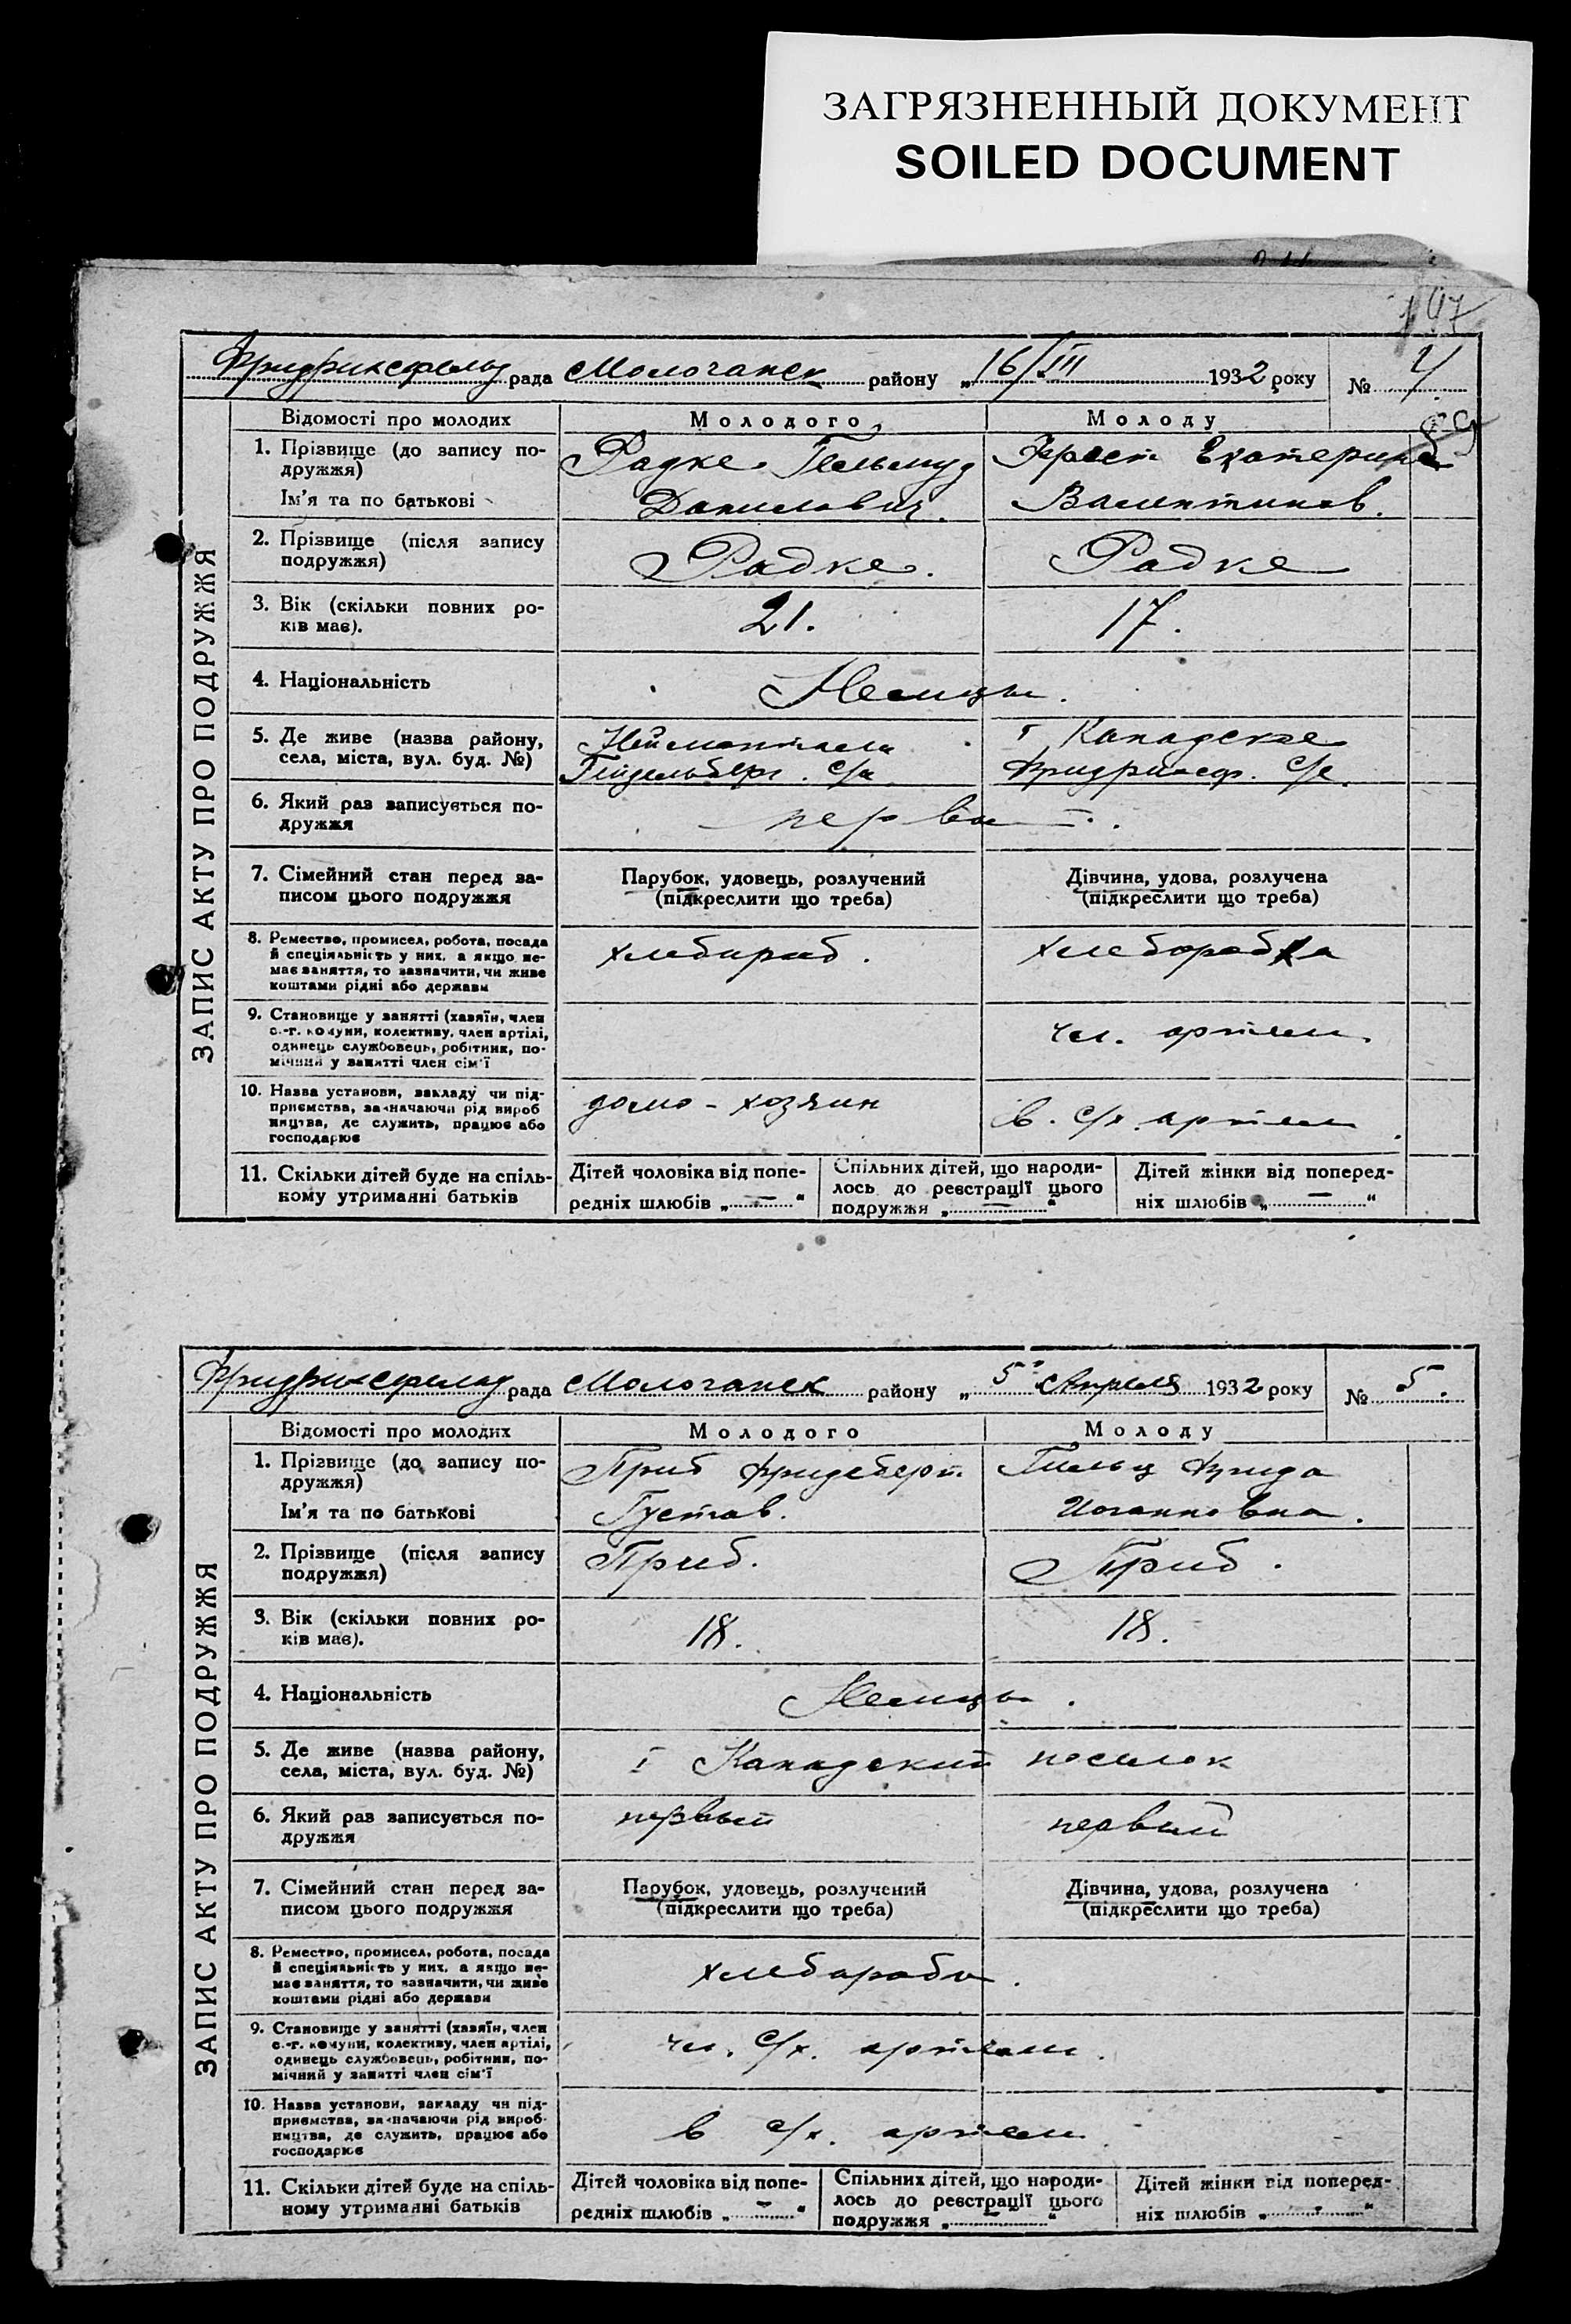 ЗАГРЯЗНЕННЫЙ ДОКУМЕНТ
SOILED DOCUMENT
ЗАПИС АКТУ ПРО ПОДРУЖЖЯ
Фридрихсфельд рада Молочанск району „ 16/III 1932 року № 4
Відомості про молодих Молодого Молоду
1. Прізвище (до запису по- Радке Гельмуд Фрост Екатерина
дружжя)
Ім'я та по батькові Данилович. Валентинов.
2. Прізвище (після запису Радке. Радке
подружжя)
3. Вік (скільки повних ро- 21. 17.
ків має).
4. Національність Немцы.
5. Де живе (назва району, Неймонталь I Канадское
села, міста, вул. буд. №) Гейдельберг. с/с Фридрихсф. с/с.
6. Який раз записується по- перв
дружжя
7. Сімейний стан перед за- Парубок, удовець, розлучений Дівчина, удова, розлучена
писом цього подружжя (підкреслити що треба) (підкреслити що треба)
8. Ремество, промисел, робота, посада хлебороб. хлеборобка
й спеціяльність у них, а якщо не-
має заняття, то зазначити, чи живе
коштами рідні або держави
9. Становище у занятті (хазяїн, член чл. артели.
с.-г. комуни, колективу, член артілі,
одинець службовець, робітник, по-
мічний у занятті член сім'ї
10. Назва установи, закладу чи під- домо-хозяин в. с/х. артели
приємства, зазначаючи рід вироб
ництва, де служить, працює або
господарює
11. Скільки дітей буде на спіль- Дітей чоловіка від попе- Спільних дітей, що народи- Дітей жінки від поперед-
ному утриманні батьків редніх шлюбів „ — “ лось до реєстрації цього ніх шлюбів „ — “
подружжя „ — “
ЗАПИС АКТУ ПРО ПОДРУЖЖЯ
Фридрихсфельд рада Молочанск району „ 5 Апреля 1932 року № 5.
Відомості про молодих Молодого Молоду
1. Прізвище (до запису по- Приб Фридеберт Гильц Фрида
дружжя)
Ім'я та по батькові Густав. Иоганновна.
2. Прізвище (після запису Приб. Приб.
подружжя)
3. Вік (скільки повних ро- 18. 18.
ків має).
4. Національність Немцы.
5. Де живе (назва району, I Канадский поселок
села, міста, вул. буд. №)
6. Який раз записується по- первый первый
дружжя
7. Сімейний стан перед за- Парубок, удовець, розлучений Дівчина, удова, розлучена
писом цього подружжя (підкреслити що треба) (підкреслити що треба)
8. Ремество, промисел, робота, посада хлеборобы.
й спеціяльність у них, а якщо не-
має заняття, то зазначити, чи живе
коштами рідні або держави
9. Становище у занятті (хазяїн, член чл. с/х. артели.
с.-г. комуни, колективу, член артілі,
одинець службовець, робітник, по-
мічний у занятті член сім'ї
10. Назва установи, закладу чи під- в с/х. артели
приємства, зазначаючи рід вироб-
ництва, де служить, працює або
господарює
11. Скільки дітей буде на спіль- Дітей чоловіка від попе- Спільних дітей, що народи- Дітей жінки від поперед-
ному утриманні батьків редніх шлюбів „ — “ лось до реєстрації цього ніх шлюбів „ — “
подружжя „ — “